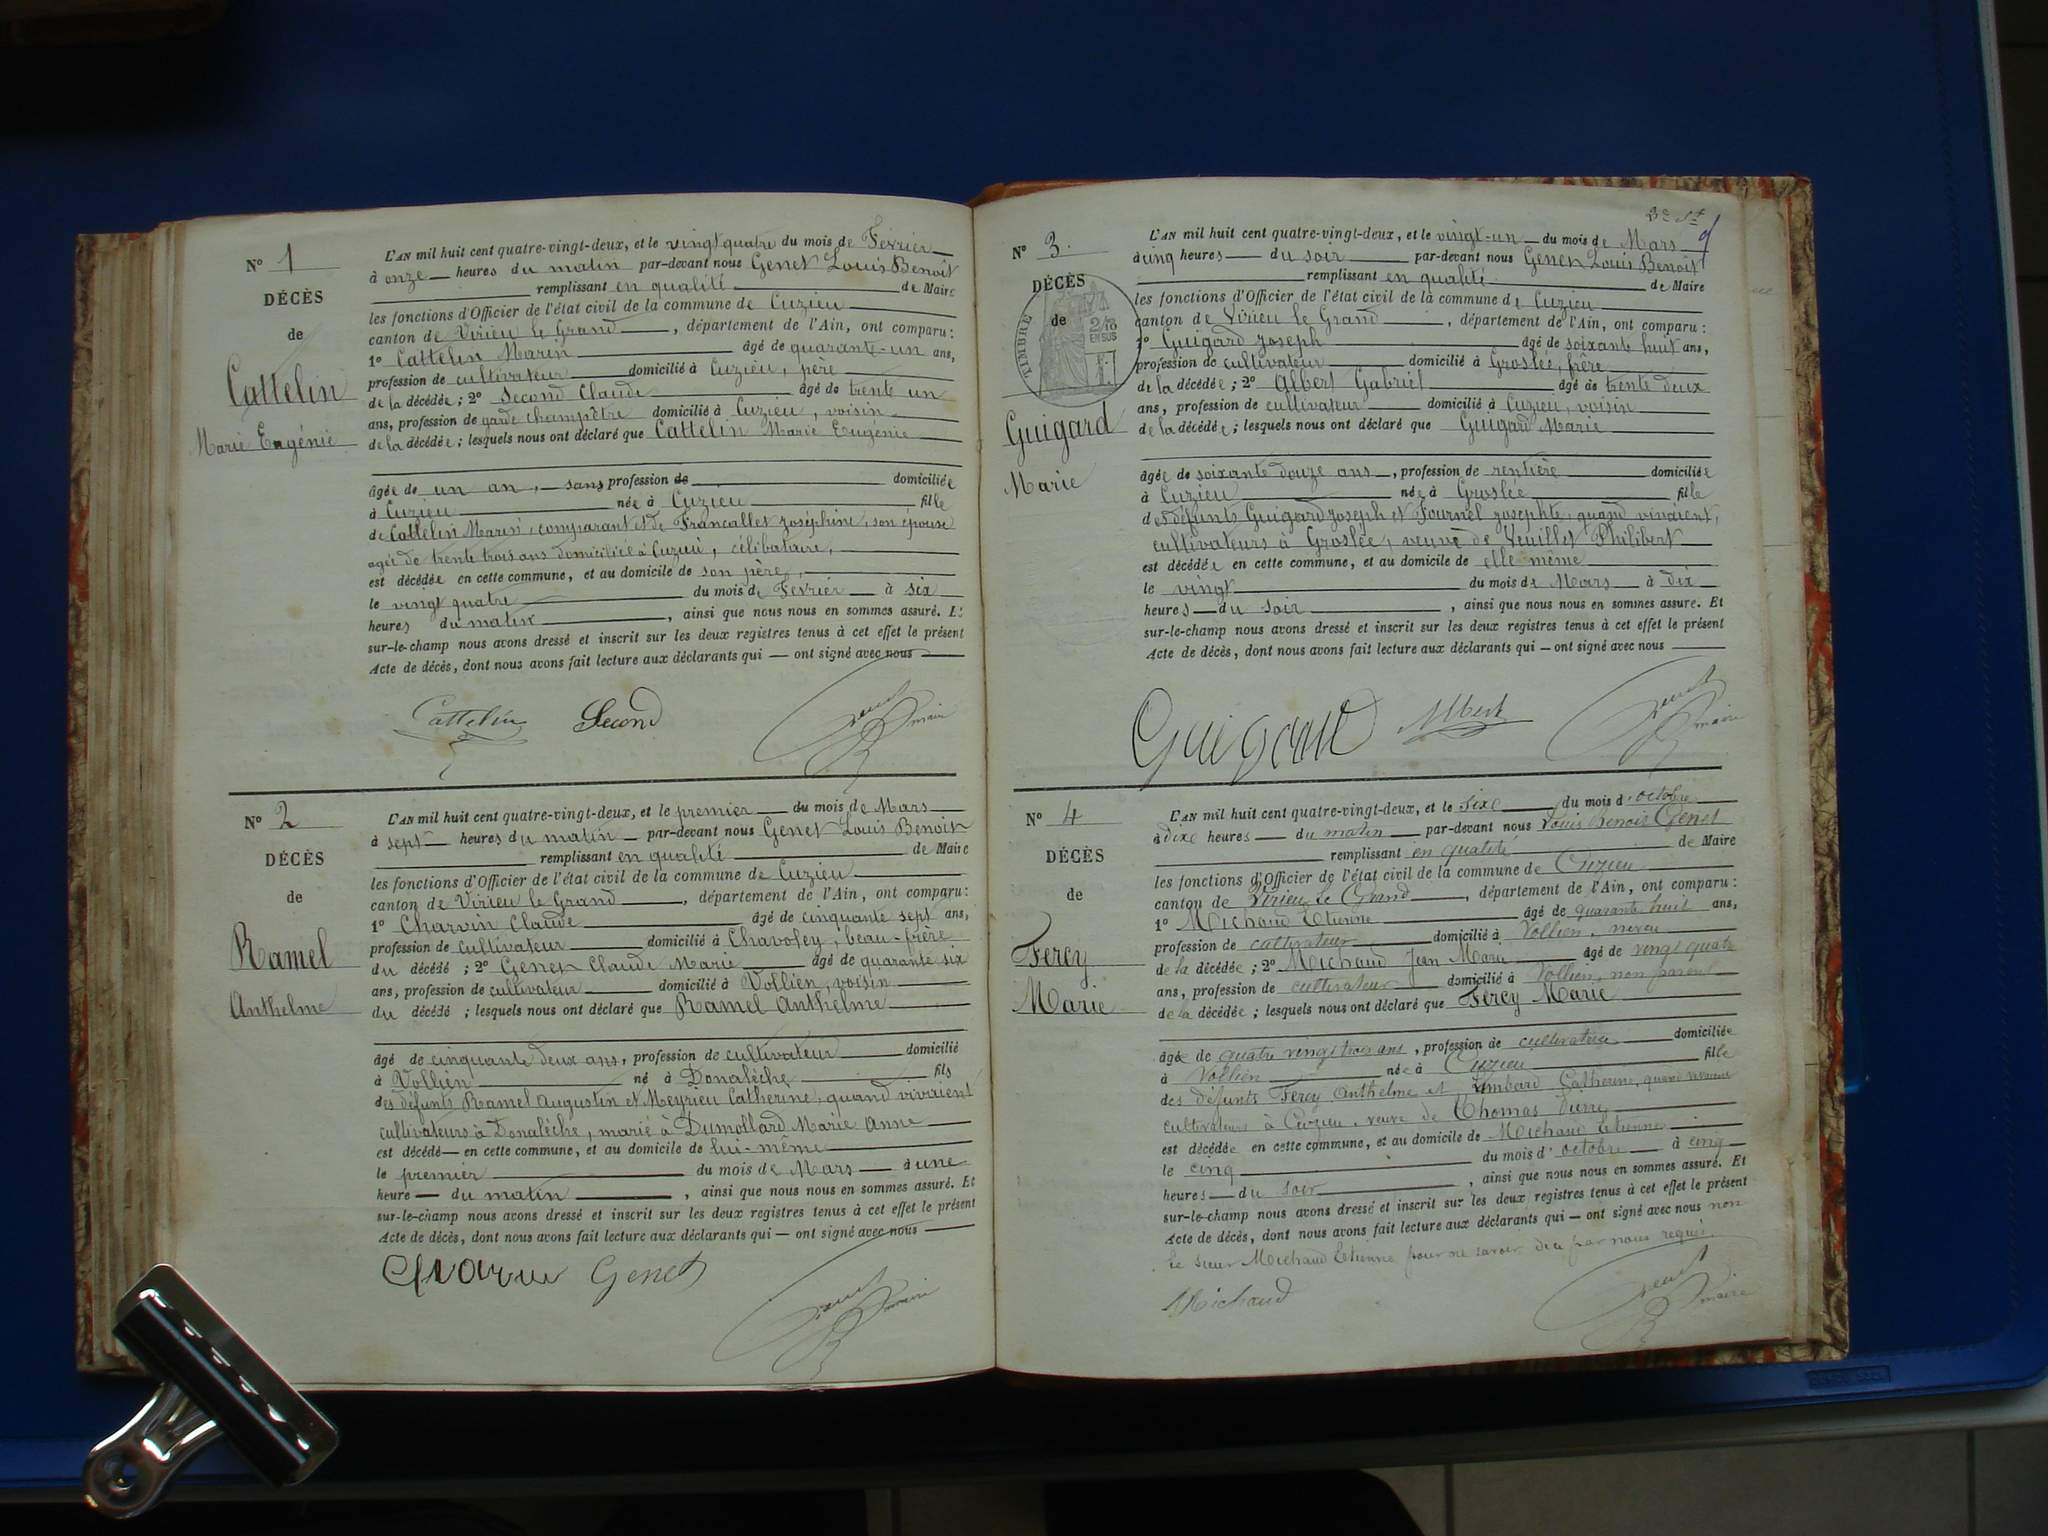 N° 1
DÉCÈS
de
Cattelin
Marie Eugénie
L'AN mil huit cent quatre-vingt-deux, et le vingt quatre du mois de Février
à onze heures du matin par-devant nous Genet Louis Benoît
remplissant en qualité de Maire
les fonctions d'Officier de l'état civil de la commune de Cuzieu
canton de Virieu le Grand, département de l'Ain, ont comparu :
1° Cattelin Marin âgé de quarante-un ans,
profession de cultivateur domicilié à Cuzieu, père
de la décédée ; 2° Second Claude âgé de trente un
ans, profession de garde champêtre domicilié à Cuzieu, voisin
de la décédée ; lesquels nous ont déclaré que Cattelin Marie Eugénie
âgée de un an, sans profession de domiciliée
à Cuzieu née à Cuzieu fille
de Cattelin Marin, comparant et de Francallet Joséphine, son épouse
agée de trente trois ans domiciliée à Cuzieu, célibataire,
est décédée en cette commune, et au domicile de son père,
le vingt quatre du mois de Février à six
heures du matin, ainsi que nous nous en sommes assuré. Et
sur-le-champ nous avons dressé et inscrit sur les deux registres tenus à cet effet le présent
Acte de décès, dont nous avons fait lecture aux déclarants qui — ont signé avec nous
Cattelin Second Genet maire
N° 2
DÉCÈS
de
Ramel
Anthelme
L'AN mil huit cent quatre-vingt-deux, et le premier du mois de Mars
à sept heures du matin par-devant nous Genet Louis Benoit
remplissant en qualité de Maire
les fonctions d'Officier de l'état civil de la commune de Cuzieu
canton de Virieu le Grand, département de l'Ain, ont comparu :
1° Charvin Claude âgé de cinquante sept ans,
profession de cultivateur domicilié à Chavoley, beau-frère
du décédé ; 2° Genet Claude Marie âgé de quarante six
ans, profession de cultivateur domicilié à Vollien, voisin
du décédé ; lesquels nous ont déclaré que Ramel Anthelme
âgé de cinquante deux ans, profession de cultivateur domicilié
à Vollien né à Donalèche fils
des défunts Ramel Augustin et Meyrieu Catherine, quand vivaient
cultivateurs à Donalèche, marié à Dumollard Marie Anne
est décédé — en cette commune, et au domicile de lui-même
le premier du mois de Mars à une
heure — du matin, ainsi que nous nous en sommes assuré. Et
sur-le-champ nous avons dressé et inscrit sur les deux registres tenus à cet effet le présent
Acte de décès, dont nous avons fait lecture aux déclarants qui — ont signé avec nous
Charvin Genet Genet maire
3e
N° 3.
DÉCÈS
de
TIMBRE
2/10
EN SUS
Guigard
Marie
L'AN mil huit cent quatre-vingt-deux, et le vingt-un du mois de Mars
à cinq heures du soir par-devant nous Genet Louis Benoît
remplissant en qualité de Maire
les fonctions d'Officier de l'état civil de la commune de Cuzieu
canton de Virieu le Grand, département de l'Ain, ont comparu :
1° Guigard Joseph âgé de soixante huit ans,
profession de cultivateur domicilié à Groslée, frère
de la décédée ; 2° Albert Gabriel âgé de trente deux
ans, profession de cultivateur domicilié à Cuzieu, voisin
de la décédée ; lesquels nous ont déclaré que Guigard Marie
âgée de soixante douze ans, profession de rentière domiciliée
à Cuzieu née à Groslée fille
des défunts Guigard Joseph et Fournel Josephte, quand vivaient,
cultivateurs à Groslée, veuve de Veuillet Philibert
est décédée en cette commune, et au domicile de elle même
le vingt du mois de Mars à dix
heures — du soir, ainsi que nous nous en sommes assuré. Et
sur-le-champ nous avons dressé et inscrit sur les deux registres tenus à cet effet le présent
Acte de décès, dont nous avons fait lecture aux déclarants qui — ont signé avec nous
Guigard Albert Genet maire
N° 4
DÉCÈS
de
Fercy
Marie
L'AN mil huit cent quatre-vingt-deux, et le sixe du mois d'octobre
à dixe heures — du matin par-devant nous Louis Benoit Genet
remplissant en qualité de Maire
les fonctions d'Officier de l'état civil de la commune de Cuzieu
canton de Virieu le Grand, département de l'Ain, ont comparu :
1° Michaud Etienne âgé de quarante huit ans,
profession de cultivateur domicilié à Vollien, neveu
de la décédée ; 2° Michaud Jean Marie âgé de vingt quatre
ans, profession de cultivateur domicilié à Vollien, non parent
de la décédée ; lesquels nous ont déclaré que Fercy Marie
âgée de quatre vingt trois ans, profession de cultivatrice domiciliée
à Vollien née à Cuzieu fille
des défunts Fercy Anthelme et Catherine, quand vivaient
cultivateurs à Cuzieu, veuve de Thomas Pierre
est décédée en cette commune, et au domicile de Michaud Etienne
le cinq du mois d'octobre à cinq
heures — du soir, ainsi que nous nous en sommes assuré. Et
sur-le-champ nous avons dressé et inscrit sur les deux registres tenus à cet effet le présent
Acte de décès, dont nous avons fait lecture aux déclarants qui — ont signé avec nous non
le sieur Michaud Etienne pour ne savoir de ce par nous requis.
Michaud Genet maire